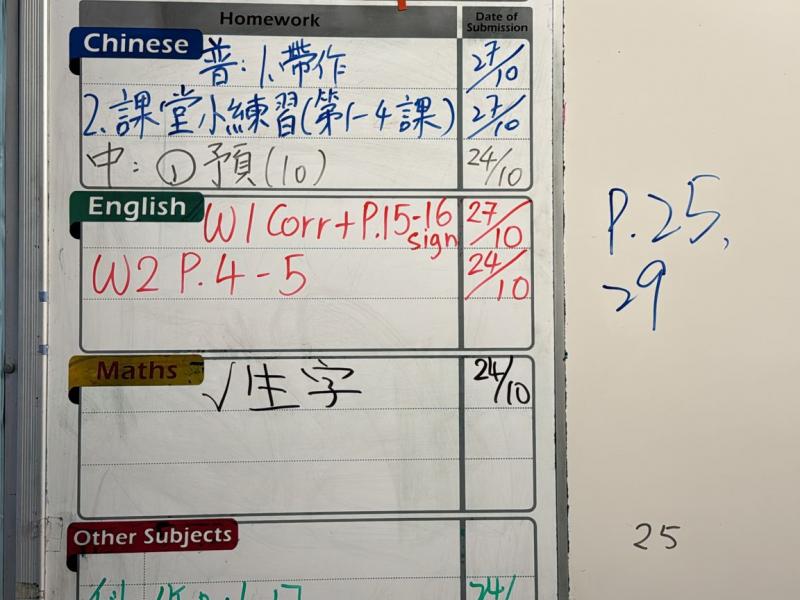 Homework Date of Submission
Chinese 普:1.帶作 27/10
2.課堂小練習(第1-4課) 27/10
中:①預(10) 24/10
English W1 Corr+P.15-16 sign 27/10
W2 P.4-5 24/10
Maths √生字 24/10
Other Subjects
24/
P.25,
29
25